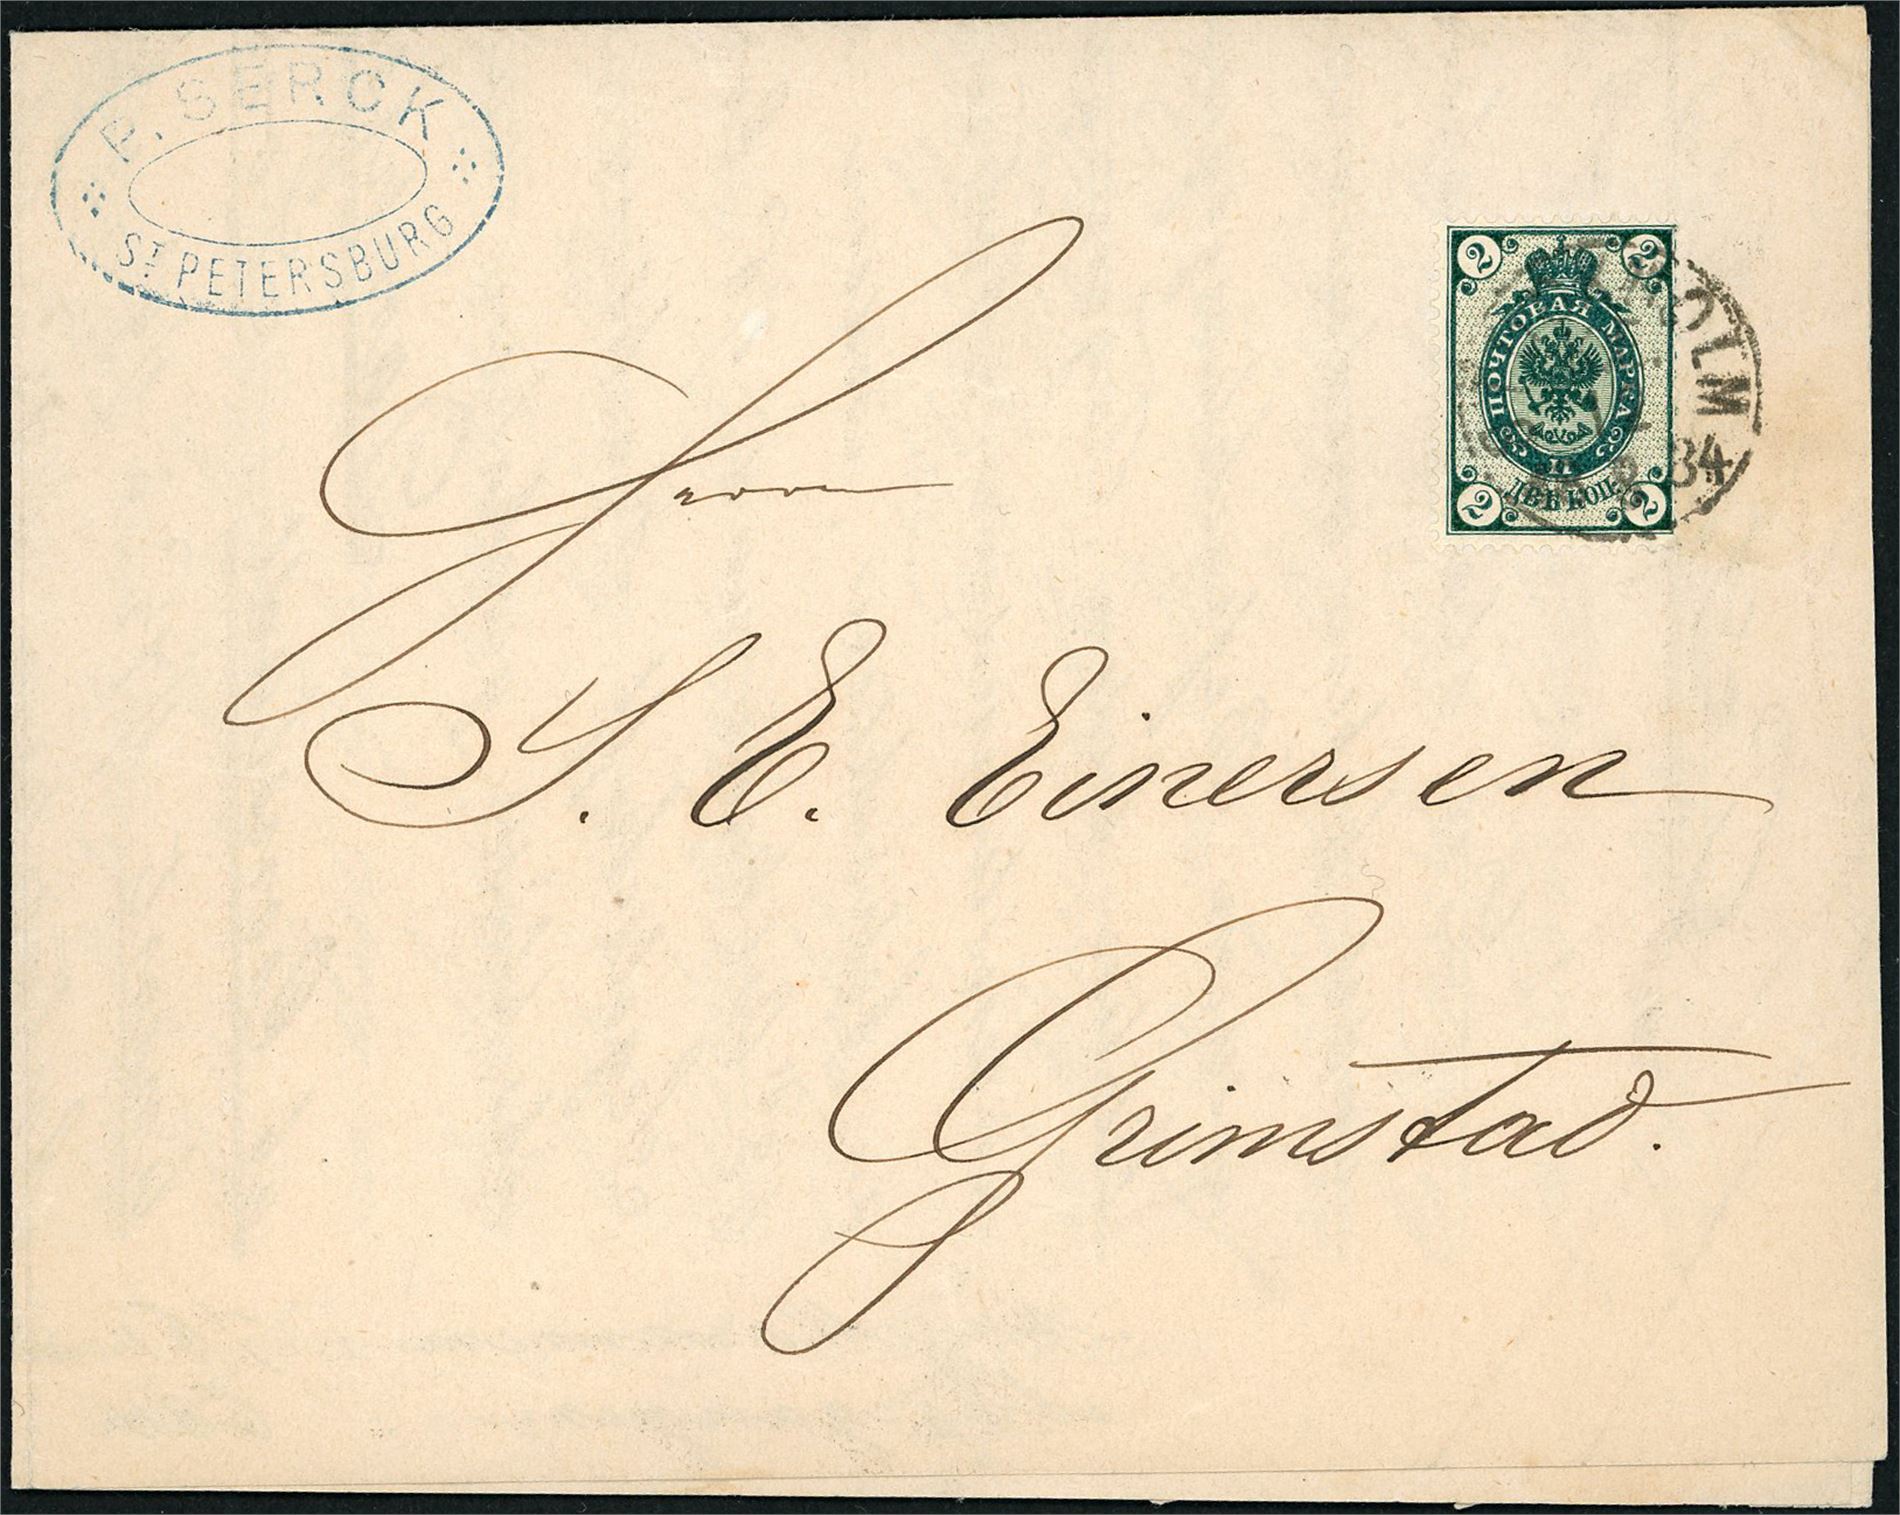 F. SERCK
ST PETERSBURG
2 2
ПОЧТОВАЯ МАРКА
ДВѢ КОП.
2 2
OLM
84
Herrn
S. E. Einersen
Grimstad.